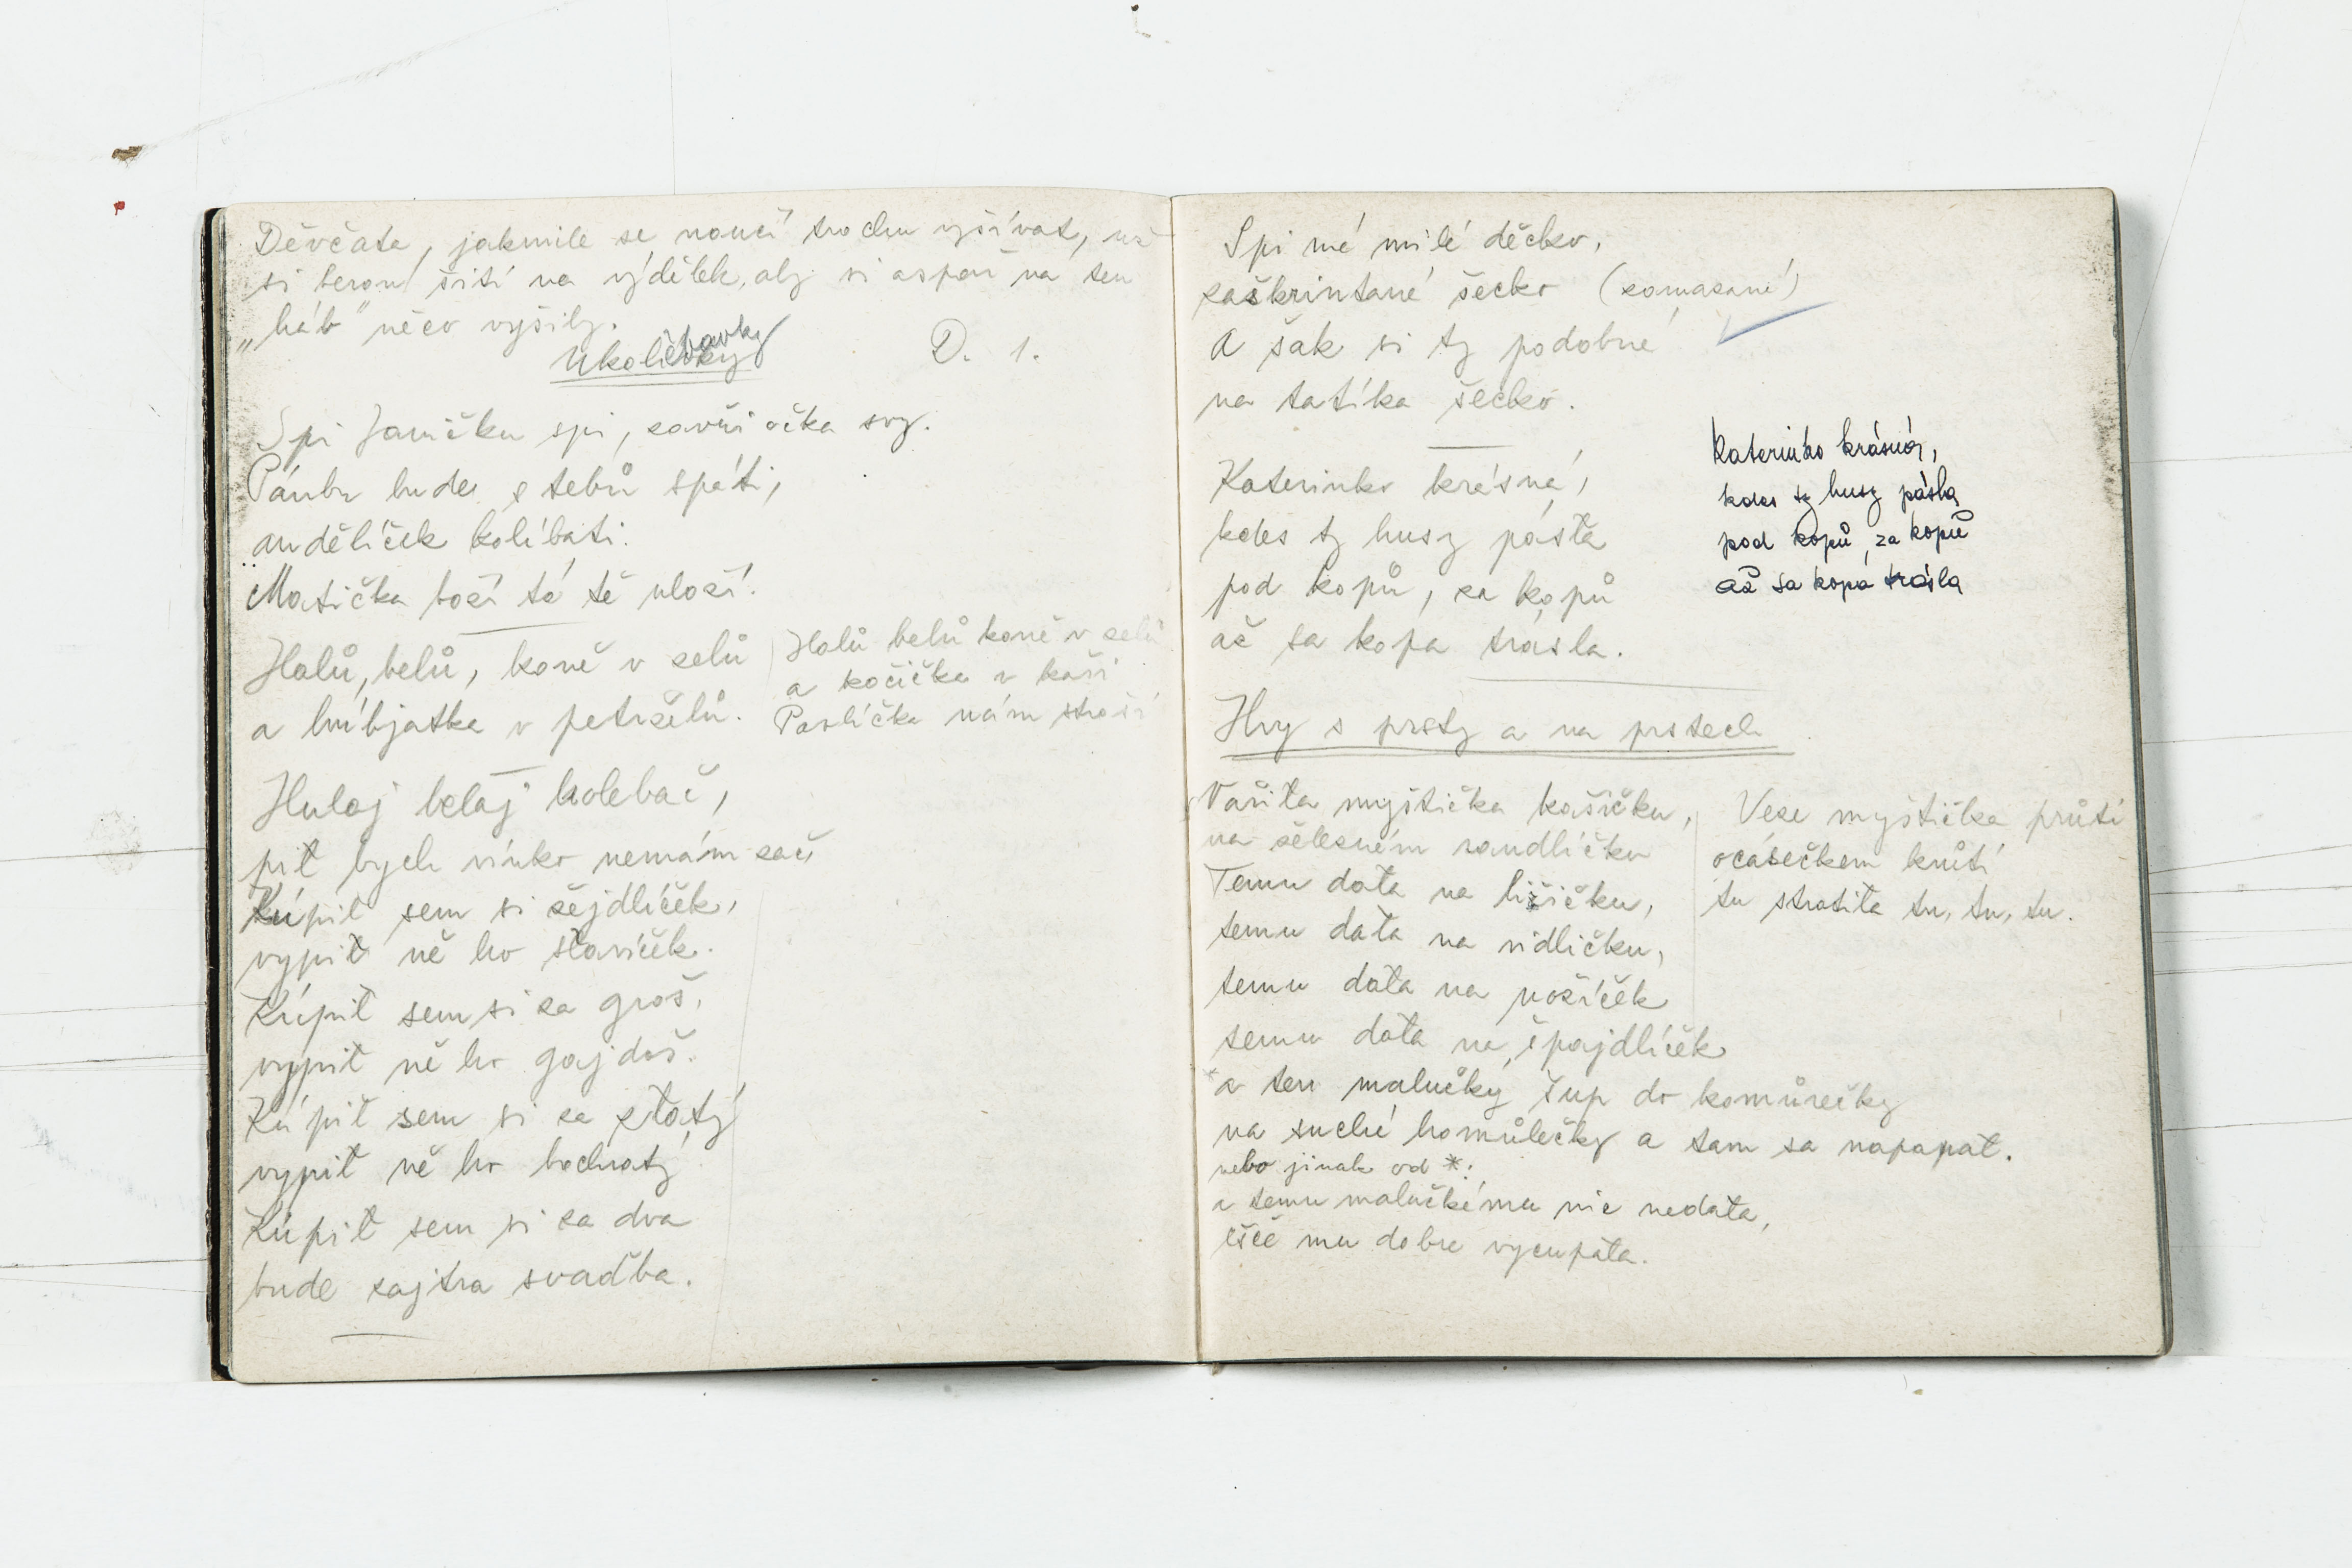 Děvčata, jakmile se naučí trochu vyšívat, už
si berou šití na výdělek, aby si aspoň na ten
„háb" něco vyšily.
Ukolébavky
D. 1.
Spi Janíčku spi, zavři očka svy.
Pánbu bude s tebů spáti,
andělíček kolíbati.
Matička boží tá tě uloží.
Halů, belů, koně v zelů
a hříbjatka v petrželů.
Halů belů koně v zelů
a kočička v kaši
Pavlíčka nám straší
Hulaj belaj kolebač,
pil bych vínko nemám zač
Kúpił sem si žejdlíček,
vypił ně ho słavíček.
Kúpił sem si za groš,
vypił ně ho gajdoš.
Kúpił sem si za złatý
vypił ně ho bochnatý.
Kúpił sem si za dva
bude zajtra svaďba.
Spi mé milé děčko,
zaškrintané šecko (zamazané)
A šak si ty podobné
na tatíka šecko.
Katerinko krásná,
kdes ty husy pásła
pod kopů, za kopů
až sa kopa trásla.
Katerinko krásná,
kdes ty husy pásla
pod kopů, za kopů
až sa kopa trásla
Hry s prsty a na prstech
Vařiła myštička kašičku,
na želesném randlíčku
Temu dała na lžičičku,
temu dała na vidličku,
temu dała na nožíček
temu dała na špajdlíček
* a ten malučký šup do komůrečky
na suché homůlečky a tam sa napapał.
nebo jinak od *:
a temu malučkému nic nedała,
ešče mu dobre vycupała.
Veze myštička průtí
ocásečkem krůtí
tu stratiła tu, tu, tu.